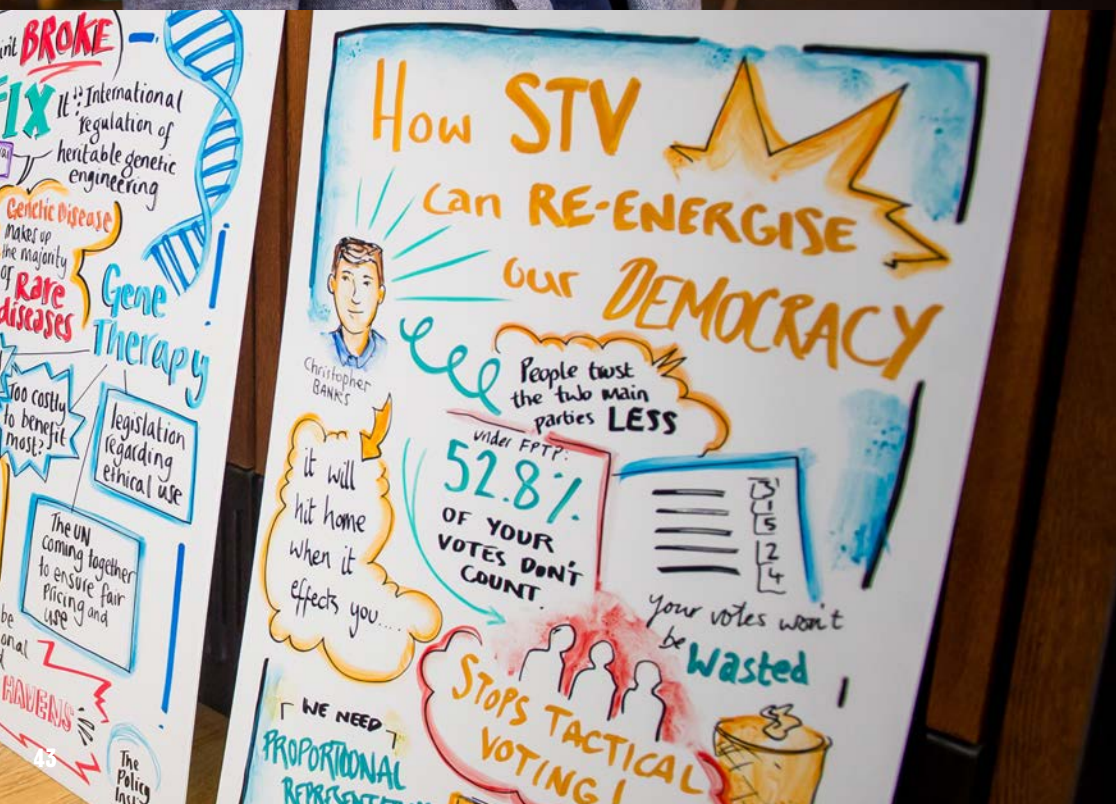 BROKE
FIX It": International
regulation of
heritable genetic
engineering
Genetic Disease
makes up
the majority
of Rare
diseases
Gene
Therapy
Too costly
to benefit
most?
legislation
regarding
ethical use
The UN
coming together
to ensure fair
pricing and
use
be
HAVENS
43
The
Policy
How STV
can RE-ENERGISE
our DEMOCRACY
Christopher
BANKS
People trust
the two main
parties LESS
it will
hit home
when it
effects you....
under FPTP:
52.8%
OF YOUR
VOTES DON'T
COUNT.
3
1
5
2
4
your votes won't
be wasted
STOPS TACTICAL
VOTING!
WE NEED
PROPORTOONAL